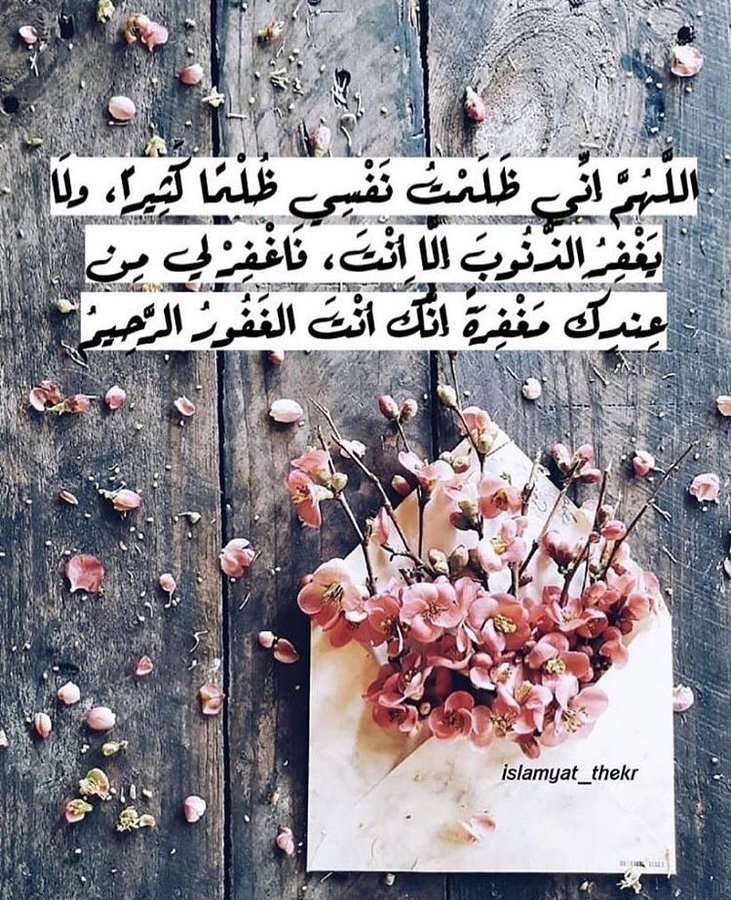 اللَّهُمَّ إنِّي ظَلَمْتُ نَفْسِي ظُلْمًا كَثِيرًا، ولَا
يَغْفِرُ الذُّنُوبَ إلَّا أنْتَ، فَاغْفِرْ لي مِن
عِندِكَ مَغْفِرَةً إنَّكَ أنْتَ الغَفُورُ الرَّحِيمُ
islamyat_thekr